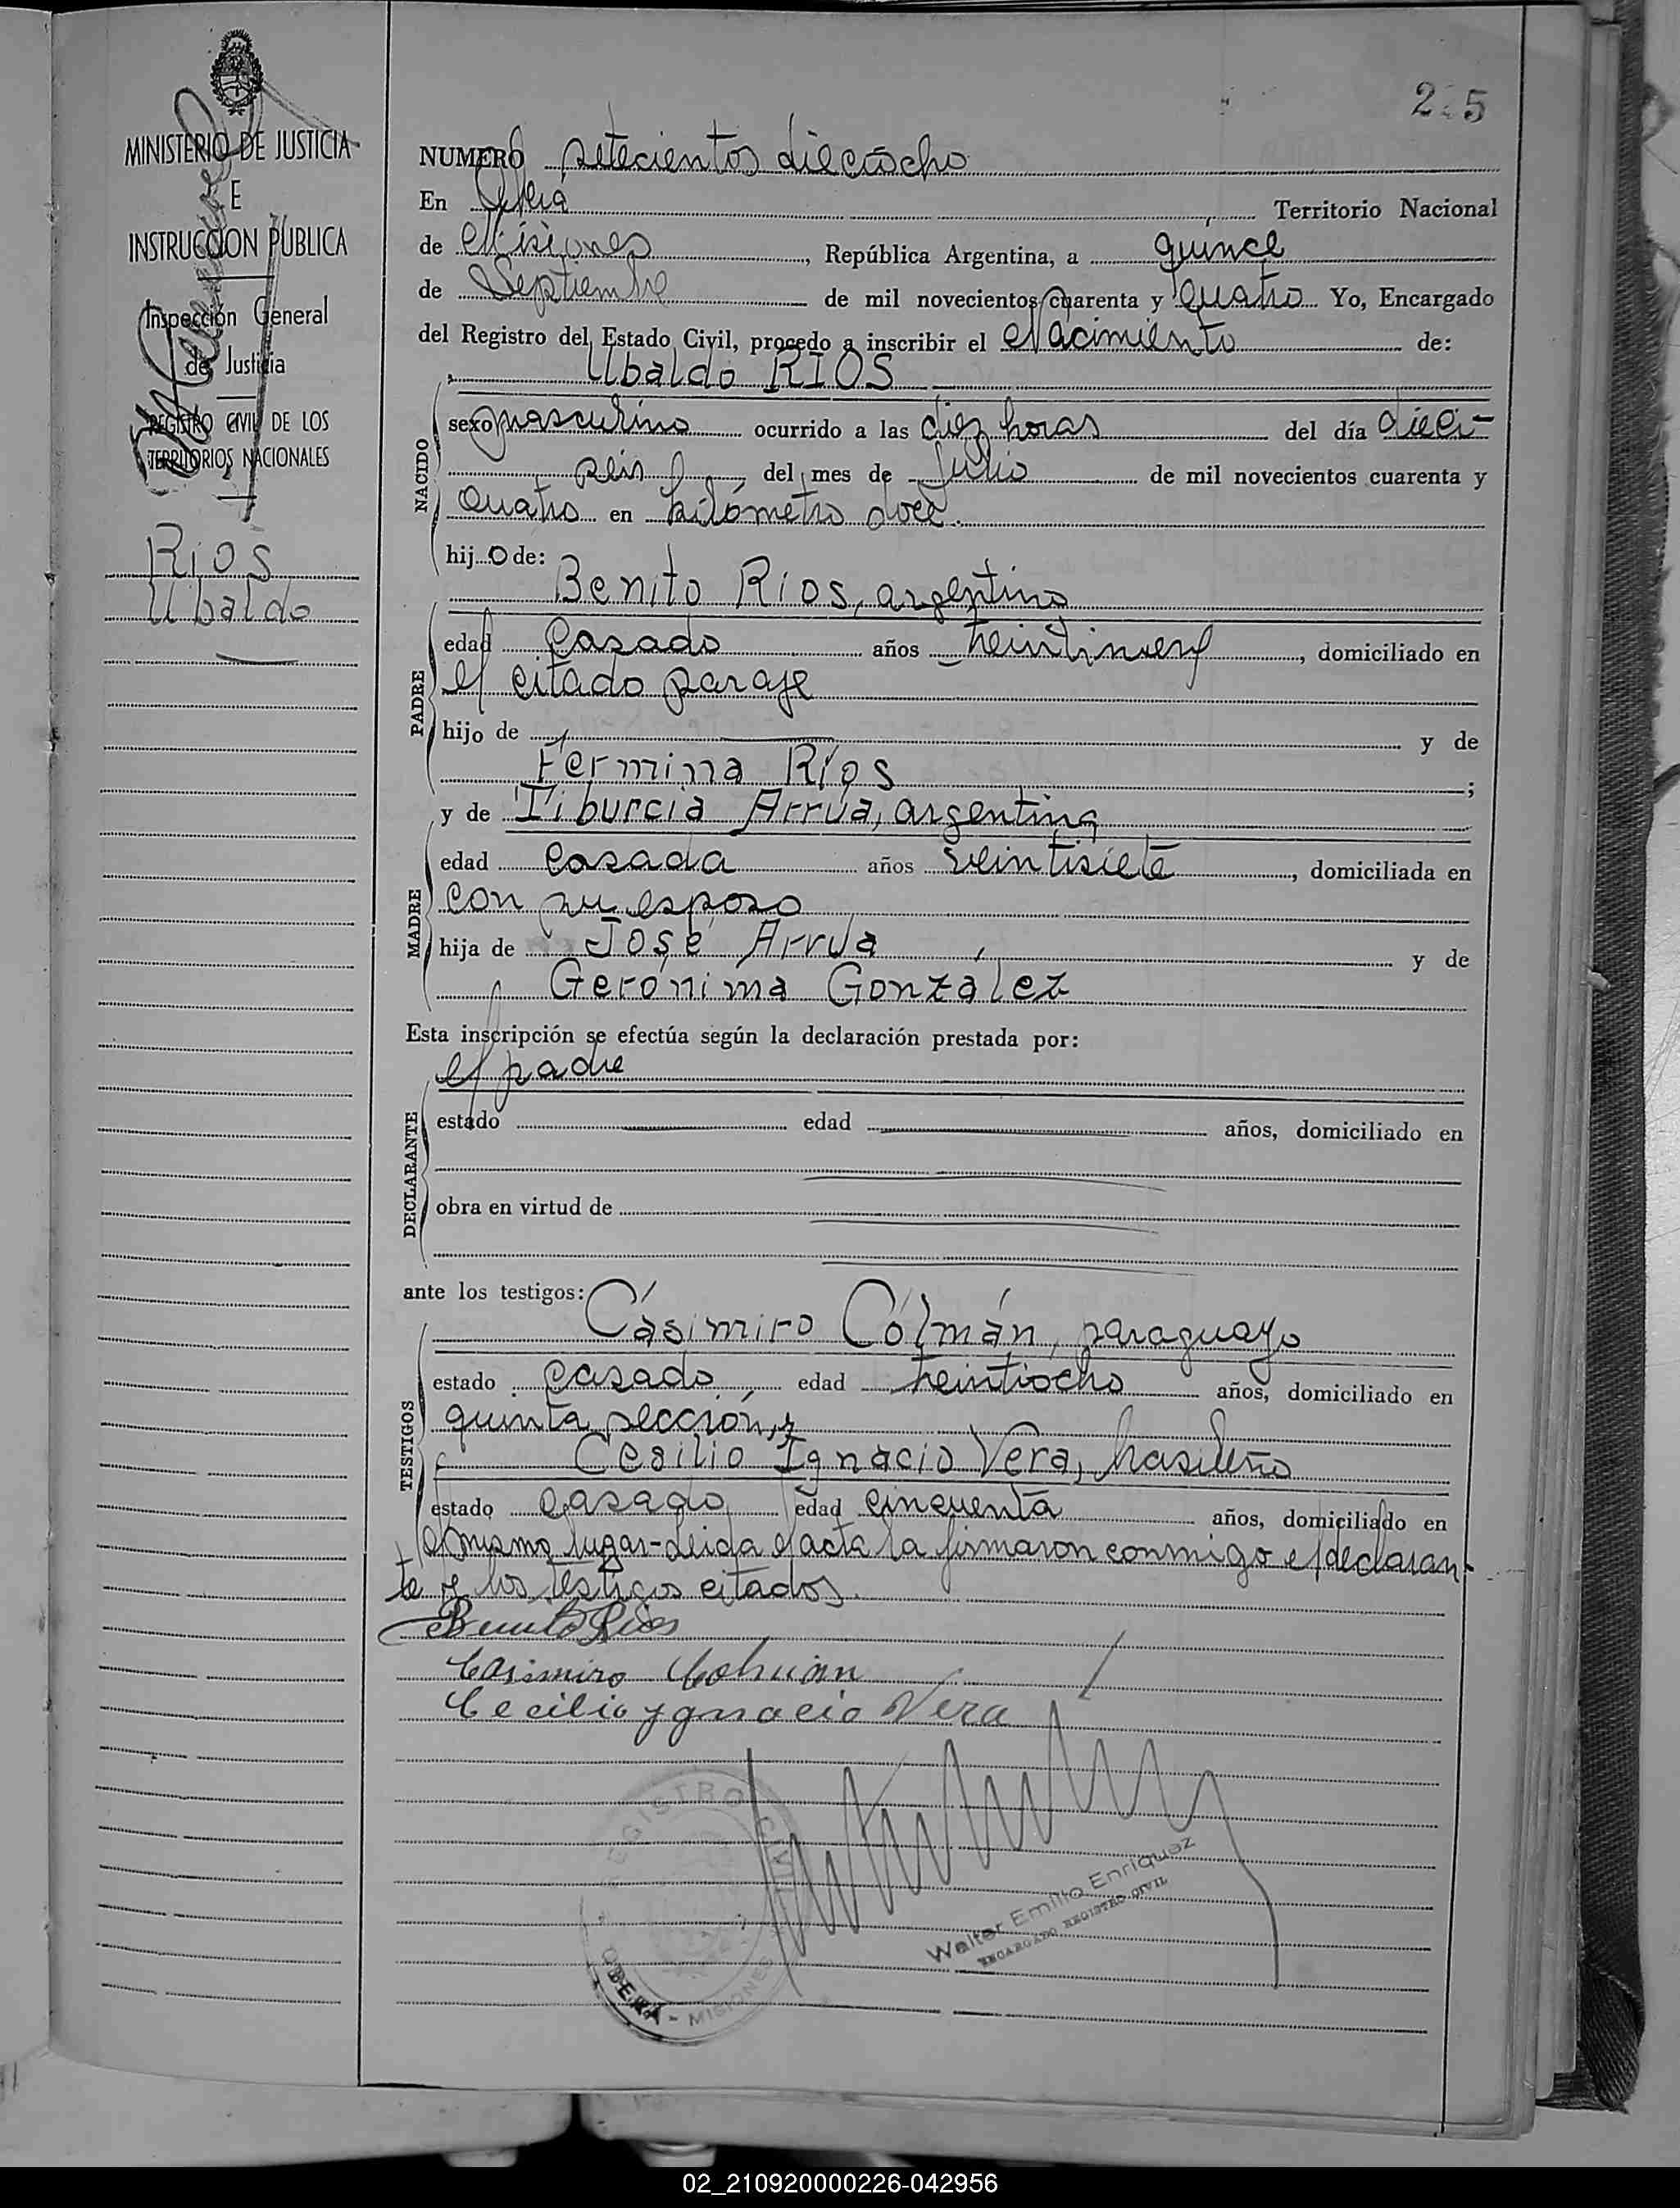 225
MINISTERIO DE JUSTICIA
E
INSTRUCCION PUBLICA
Inspección General
de Justicia
REGISTRO CIVIL DE LOS
TERRITORIOS NACIONALES
Ríos
Ubaldo
NUMERO setecientos dieciocho
En Oberá Territorio Nacional
de Misiones, República Argentina, a quince
de Septiembre de mil novecientos cuarenta y cuatro Yo, Encargado
del Registro del Estado Civil, procedo a inscribir el Nacimiento de:
Ubaldo RIOS
NACIDO
sexo masculino ocurrido a las diez horas del día dieci-
seis del mes de Julio de mil novecientos cuarenta y
cuatro en kilómetro doce.
hijo de:
Benito Ríos, argentino
PADRE
edad casado años treintinueve, domiciliado en
el citado paraje
hijo de y de
Fermina Ríos ;
y de Tiburcia Arrúa, argentina
MADRE
edad casada años veintisiete, domiciliada en
con su esposo
hija de José Arrúa y de
Gerónima González
Esta inscripción se efectúa según la declaración prestada por:
el padre
DECLARANTE
estado edad años, domiciliado en
obra en virtud de
ante los testigos:
Cásimiro Cólmán, paraguayo
TESTIGOS
estado casado, edad treintiocho años, domiciliado en
quinta sección, y
Cesilio Ignacio Vera, brasileño
estado casado edad cincuenta años, domiciliado en
el mismo lugar-Leida el acta la firmaron conmigo el declaran-
te y los testigos citados.
Benito Rios
Casimiro Colman
Cecilio Ygnacio Vera
REGISTRO CIVIL
OBERÁ - MISIONES
Walter Emilio Enriquez
ENCARGADO REGISTRO CIVIL
02_210920000226-042956